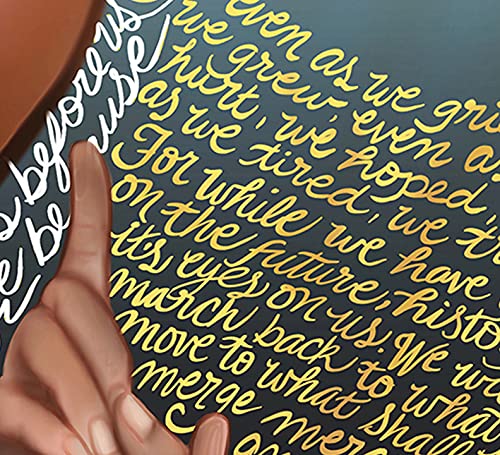 before us
be ause
even as we gri
we grew, even as
hurt, we hoped,
as we tired, we t
For while we have
on the future, histo
it's eyes on us. We w
march back to what
move to what shall
merge mer